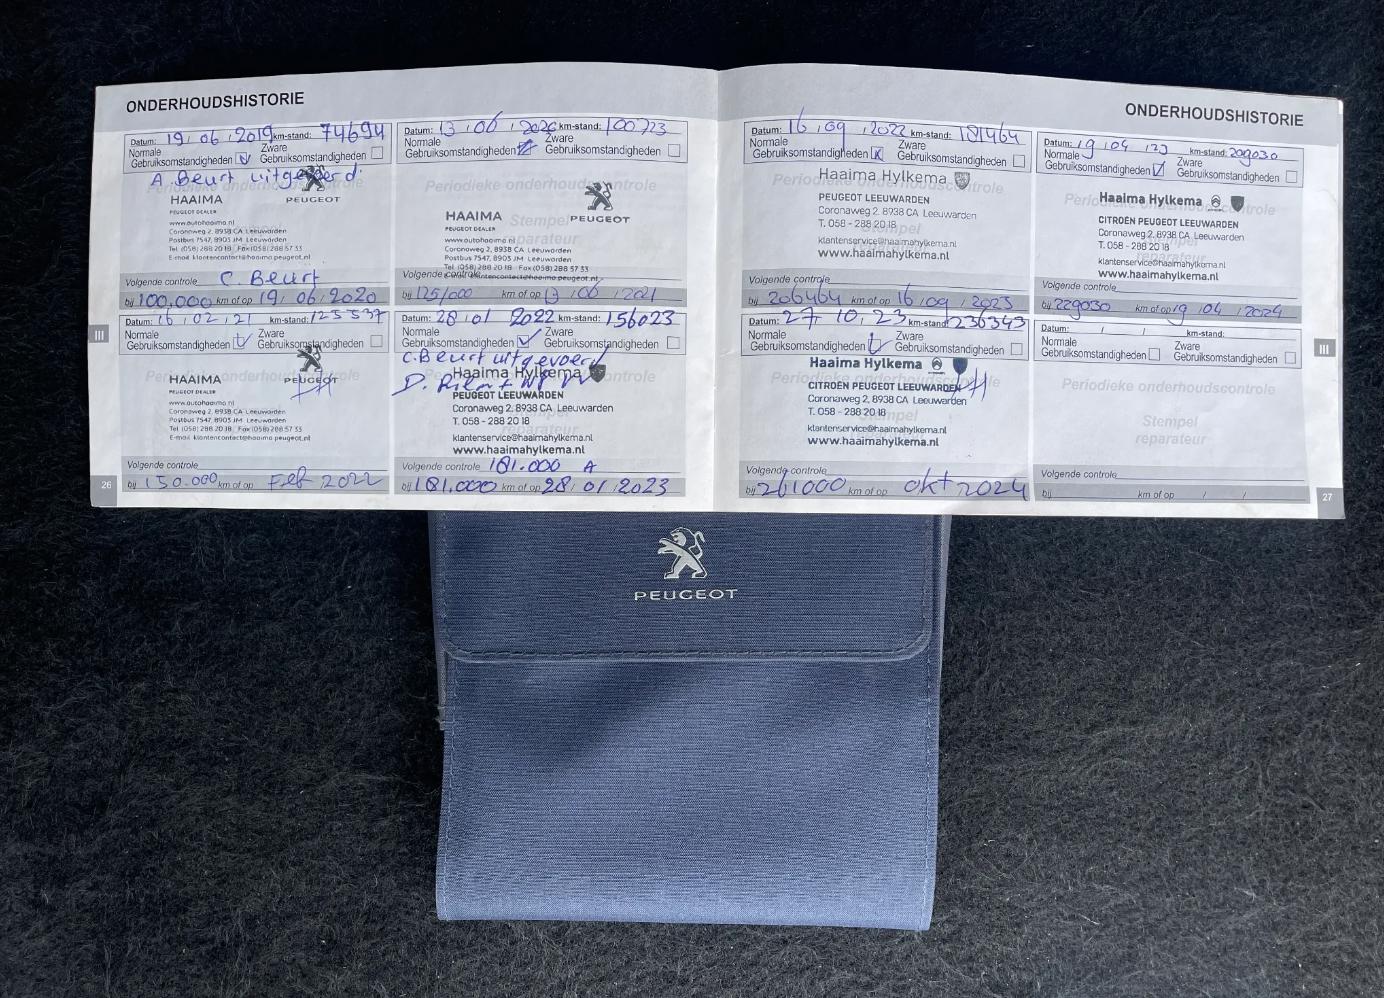 ONDERHOUDSHISTORIE
Datum: 19 / 06 / 2019 km-stand: 74694
Normale Gebruiksomstandigheden Zware Gebruiksomstandigheden
A Beurt uitgevoerd.
Periodieke onderhoudscontrole
HAAIMA
PEUGEOT DEALER
PEUGEOT
www.autohaaima.nl
Coronaweg 2, 8938 CA Leeuwarden
Postbus 7547, 8903 JM Leeuwarden
Tel. (058) 288 20 18 Fax (058) 288 57 33
E-mail klantencontact@haaima.peugeot.nl
Volgende controle C. Beurt
bij 100.000 km of op 19 / 06 / 2020
Datum: 13 / 06 / 2020 km-stand: 100723
Normale Gebruiksomstandigheden Zware Gebruiksomstandigheden
Periodieke onderhoudscontrole
Stempel
reparateur
HAAIMA
PEUGEOT DEALER
PEUGEOT
www.autohaaima.nl
Coronaweg 2, 8938 CA Leeuwarden
Postbus 7547, 8903 JM Leeuwarden
Tel. (058) 288 20 18 Fax (058) 288 57 33
klantencontact@haaima.peugeot.nl
Volgende controle
bij 125/000 km of op 13 / 06 / 2021
Datum: 16 / 02 / 21 km-stand: 125537
Normale Gebruiksomstandigheden Zware Gebruiksomstandigheden
HAAIMA
PEUGEOT DEALER
PEUGEOT
www.autohaaima.nl
Coronaweg 2, 8938 CA Leeuwarden
Postbus 7547, 8903 JM Leeuwarden
Tel. (058) 288 20 18 Fax (058) 288 57 33
E-mail klantencontact@haaima.peugeot.nl
Volgende controle
bij 150.000 km of op Feb 2022
Datum: 28 / 01 2022 km-stand: 156023
Normale Gebruiksomstandigheden Zware Gebruiksomstandigheden
C. Beurt uitgevoerd
Haaima Hylkema
PEUGEOT LEEUWARDEN
Coronaweg 2, 8938 CA Leeuwarden
T. 058 - 288 20 18
klantenservice@haaimahylkema.nl
www.haaimahylkema.nl
Volgende controle 181.000 A
bij 181.000 km of op 28 / 01 / 2023
III
26
ONDERHOUDSHISTORIE
Datum: 16 / 09 / 2022 km-stand: 181464
Normale Gebruiksomstandigheden Zware Gebruiksomstandigheden
Periodieke onderhoudscontrole
Haaima Hylkema
PEUGEOT LEEUWARDEN
Coronaweg 2, 8938 CA Leeuwarden
T. 058 - 288 20 18
klantenservice@haaimahylkema.nl
www.haaimahylkema.nl
Volgende controle
bij 206464 km of op 16 / 09 / 2023
Datum: 19 / 04 / 23 km-stand: 209030
Normale Gebruiksomstandigheden Zware Gebruiksomstandigheden
Periodieke onderhoudscontrole
Haaima Hylkema
CITROËN PEUGEOT LEEUWARDEN
Coronaweg 2, 8938 CA Leeuwarden
T. 058 - 288 20 18
klantenservice@haaimahylkema.nl
www.haaimahylkema.nl
Volgende controle
bij 229030 km of op 19 / 04 / 2024
Datum: 27 / 10 / 23 km-stand: 236343
Normale Gebruiksomstandigheden Zware Gebruiksomstandigheden
Periodieke onderhoudscontrole
Haaima Hylkema
CITROËN PEUGEOT LEEUWARDEN
Coronaweg 2, 8938 CA Leeuwarden
T. 058 - 288 20 18
klantenservice@haaimahylkema.nl
www.haaimahylkema.nl
Volgende controle
bij 261000 km of op okt 2024
Datum: / / km-stand:
Normale Gebruiksomstandigheden Zware Gebruiksomstandigheden
Periodieke onderhoudscontrole
Stempel
reparateur
Volgende controle
bij km of op / /
III
27
PEUGEOT